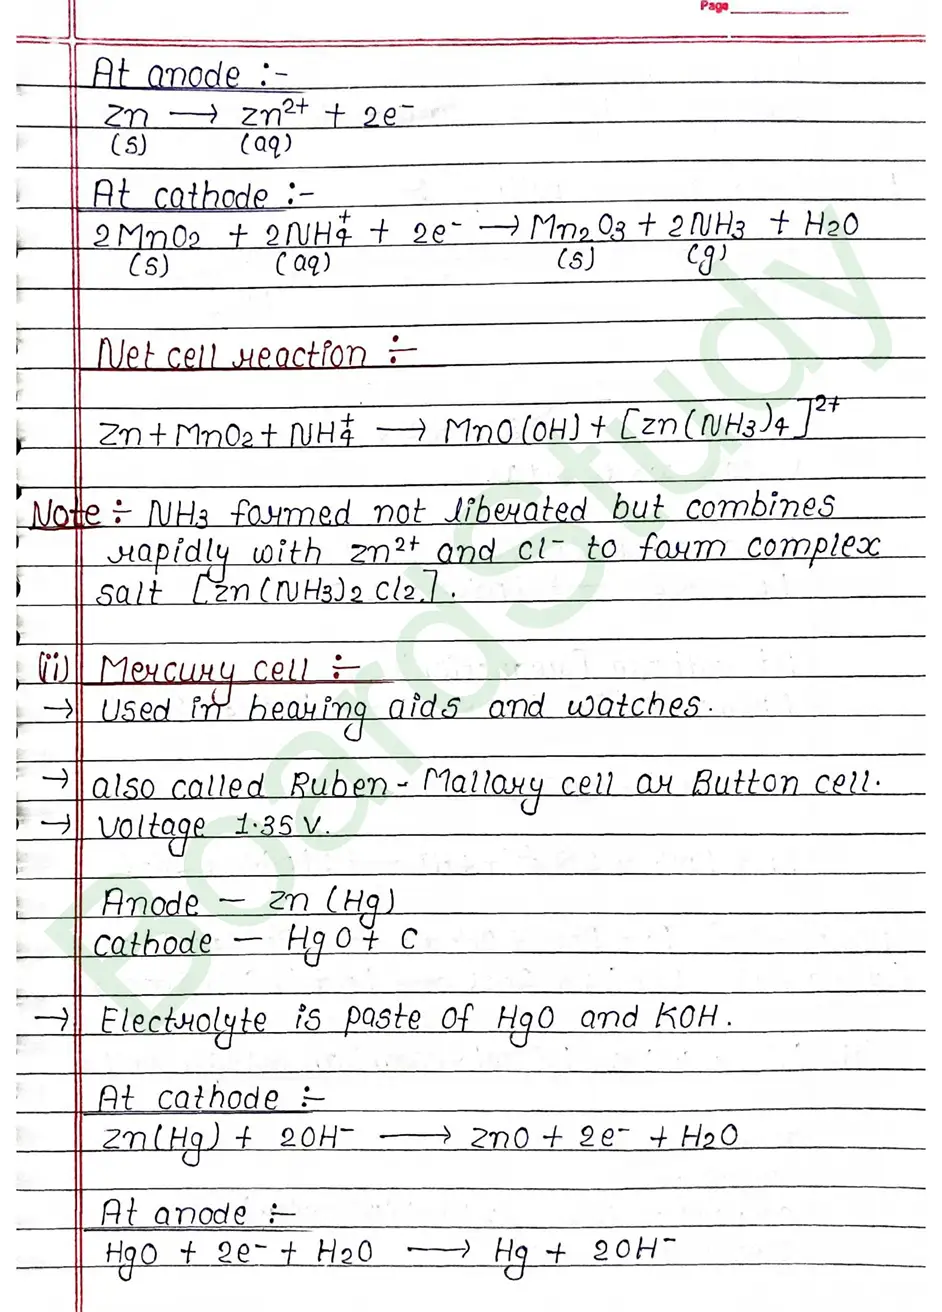 Page
At anode :-
Zn ⟶ Zn²⁺ + 2e⁻
(s) (aq)
At cathode :-
2MnO₂ + 2NH₄⁺ + 2e⁻ ⟶ Mn₂O₃ + 2NH₃ + H₂O
(s) (aq) (s) (g)
Net cell reaction :-
Zn + MnO₂ + NH₄⁺ ⟶ MnO(OH) + [Zn(NH₃)₄]²⁺
Note :- NH₃ formed not liberated but combines
rapidly with Zn²⁺ and Cl⁻ to form complex
salt [Zn(NH₃)₂Cl₂].
(ii) Mercury cell :-
→ Used in hearing aids and watches.
→ also called Ruben - Mallary cell or Button cell.
→ Voltage 1.35 V.
Anode - Zn (Hg)
cathode - HgO + C
→ Electrolyte is paste of HgO and KOH.
At cathode :-
Zn(Hg) + 2OH⁻ ⟶ ZnO + 2e⁻ + H₂O
At anode :-
HgO + 2e⁻ + H₂O ⟶ Hg + 2OH⁻
BoardStudy